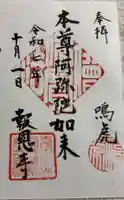 奉拝
本尊阿弥陀如来
鳴虎
令和七年
十月一日
報恩寺